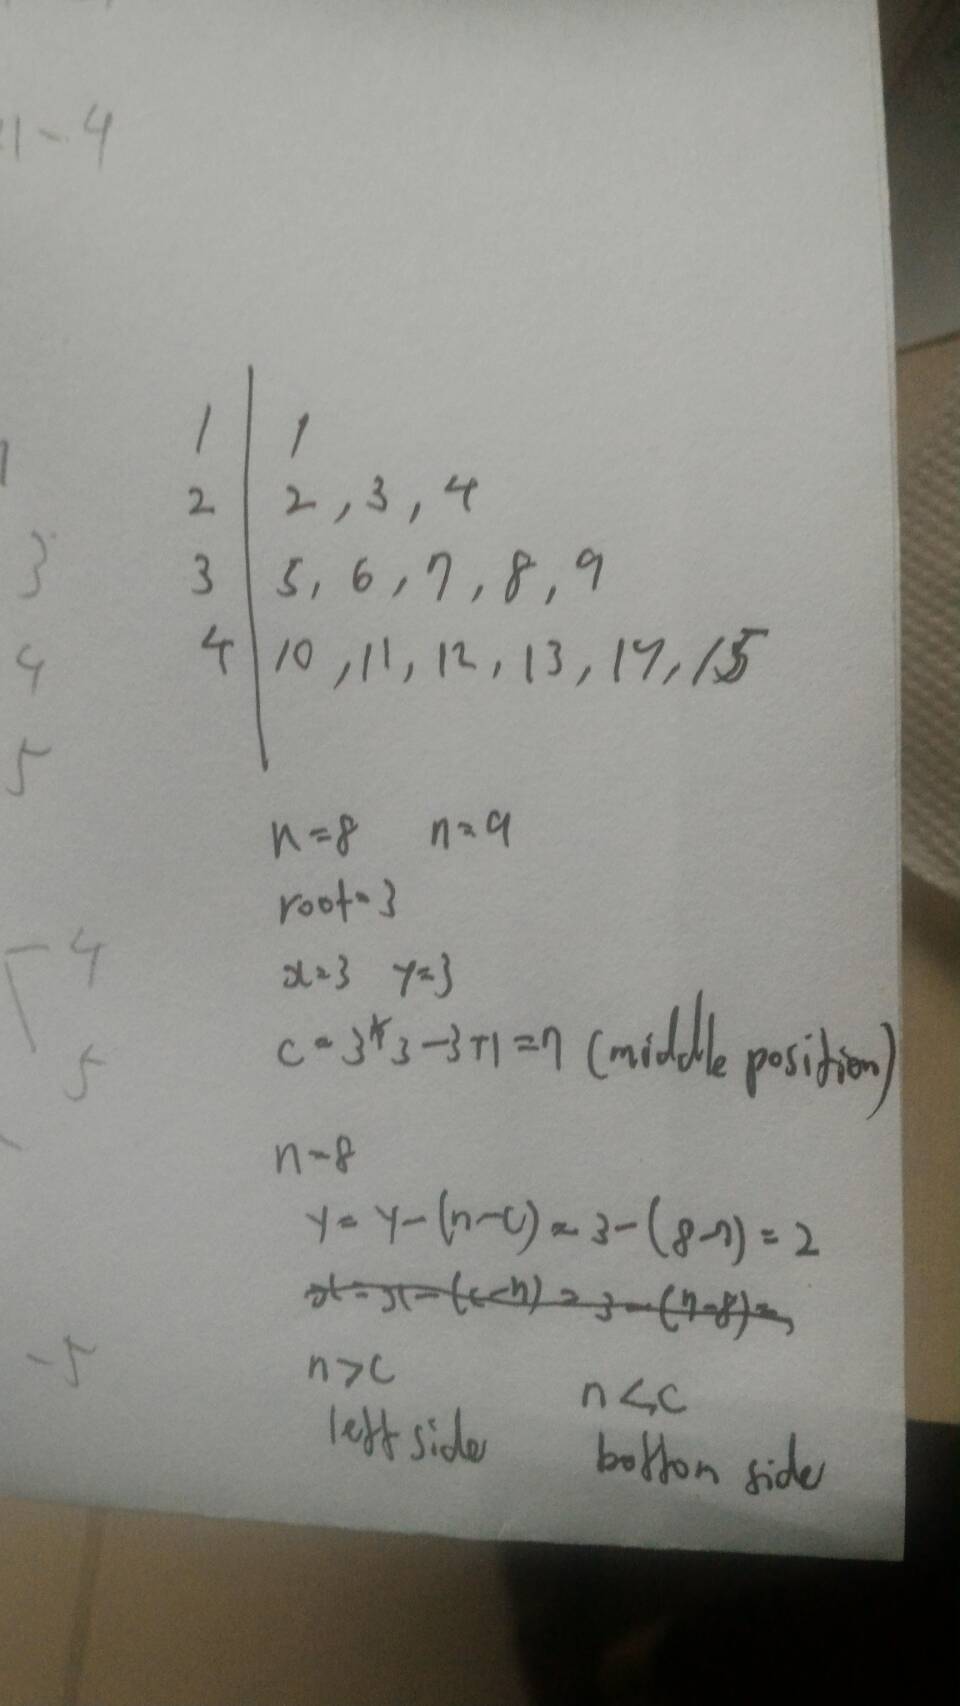 1-4
1 | 1
2 | 2, 3, 4
3 | 5, 6, 7, 8, 9
4 | 10, 11, 12, 13, 14, 15
3
4
5
n=8 n=9
root=3
4
x=3 y=3
c=3*3-3+1=7 (middle position)
5
n=8
y=y-(n-c)=3-(8-7)=2
x=x-(c-n)=3-(7-8)=
-5
n>c n<c
left side bottom side